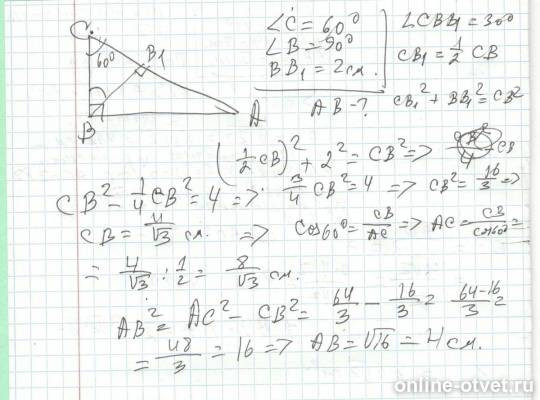 C
60°
B₁
B
A
∠C = 60°
∠B = 90°
BB₁ = 2 см.
AB - ?
∠CBB₁ = 30°
CB₁ = 1/2 CB
CB₁² + BB₁² = CB²
(1/2 CB)² + 2² = CB² =>
CB² - 1/4 CB² = 4 => 3/4 CB² = 4 => CB² = 16/3 =>
CB = 4/√3 см. => Cos60° = CB/AC => AC = CB/cos60° =
= 4/√3 : 1/2 = 8/√3 см.
AB² = AC² - CB² = 64/3 - 16/3 = 64-16/3 =
= 48/3 = 16 => AB = √16 = 4 см.
online-otvet.ru